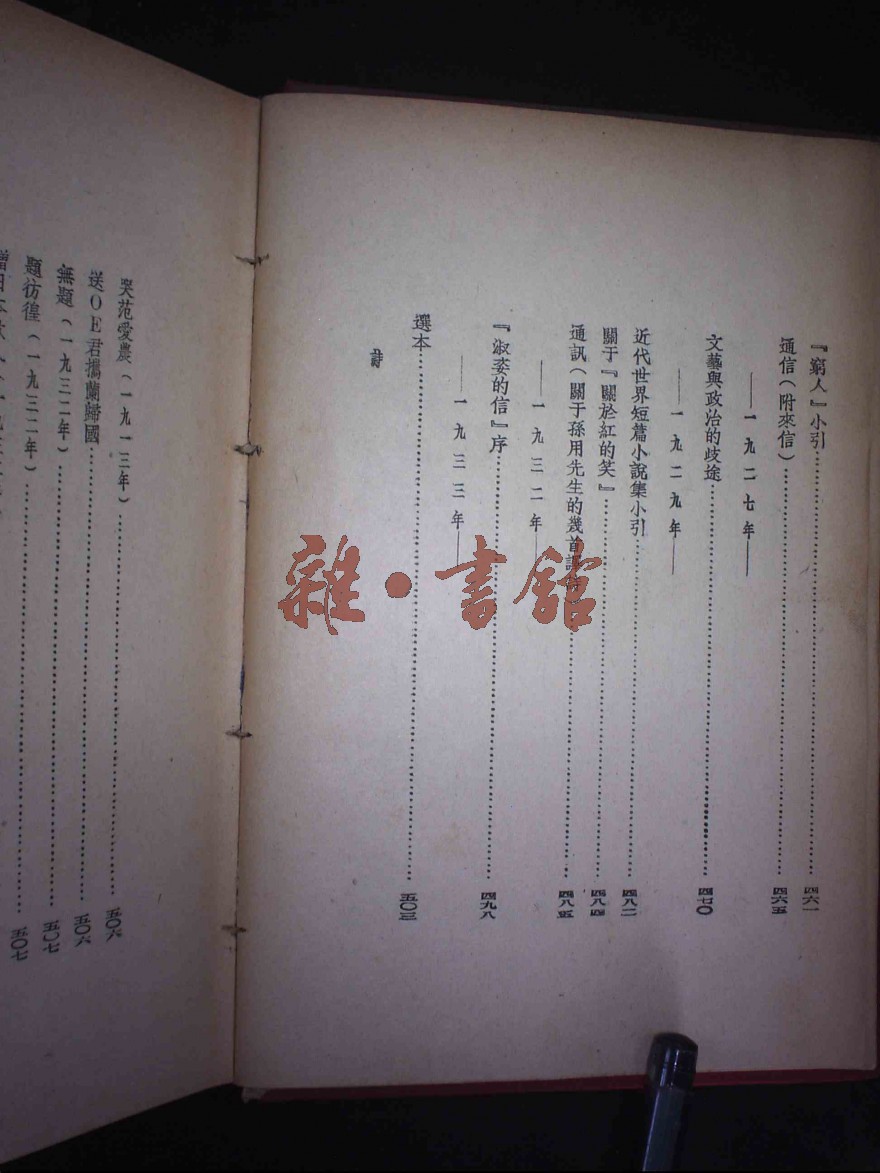 『窮人』小引……四六一
通信(附來信)……四六五
——一九二七年——
文藝與政治的歧途……四七〇
——一九二九年——
近代世界短篇小說集小引……四八二
關于『關於紅的笑』……四八四
通訊(關于孫用先生的幾首譯詩)……四八五
——一九三二年——
『淑姿的信』序……四九八
——一九三三年——
選本……五〇三
詩
哭范愛農(一九一三年)……五〇六
送OE君攜蘭歸國……五〇六
無題(一九三二年)……五〇七
題彷徨(一九三二年)……五〇七
雜·書館